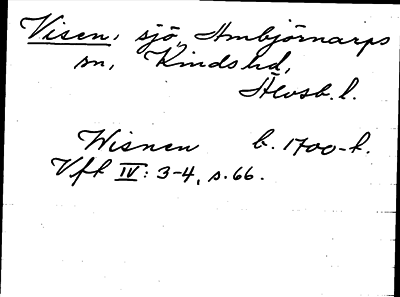 Visen, sjö, Ambjörnarps
sn, Kinds hd,
Älvsb. l.
Wisnen b. 1700-t.
Vft IV: 3-4, s. 66.